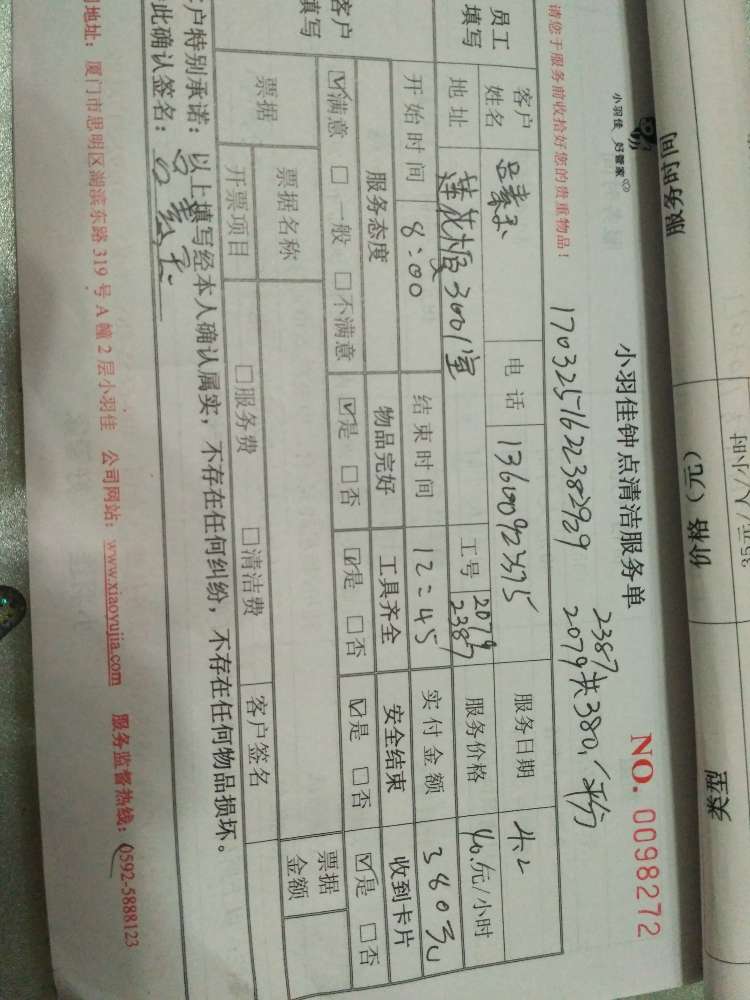 服务时间
价格（元）
类型
35元/人/小时
小羽佳 好管家
小羽佳钟点清洁服务单
NO. 0098272
2387
1703251622382929 2079共380,平分
请您于服务前收拾好您的贵重物品！
员工填写 客户姓名 电话 13600923575 服务日期 4.2
地址 莲花大厦3001室 工号 2079 2387 服务价格 40.元/小时
开始时间 8:00 结束时间 12:45 实付金额 380元
客户填写 服务态度 物品完好 工具齐全 安全结束 收到卡片
☑满意 □一般 □不满意 ☑是 □否 ☑是 □否 ☑是 □否 ☑是 □否
票据 票据名称 票据金额
开票项目 □服务费 □清洁费 客户签名
客户特别承诺：以上填写经本人确认属实，不存在任何纠纷，不存在任何物品损坏。
此确认签名：
地址：厦门市思明区湖滨东路319号A幢2层小羽佳 公司网站：www.xiaoyujia.com 服务监督热线：0592-5888123